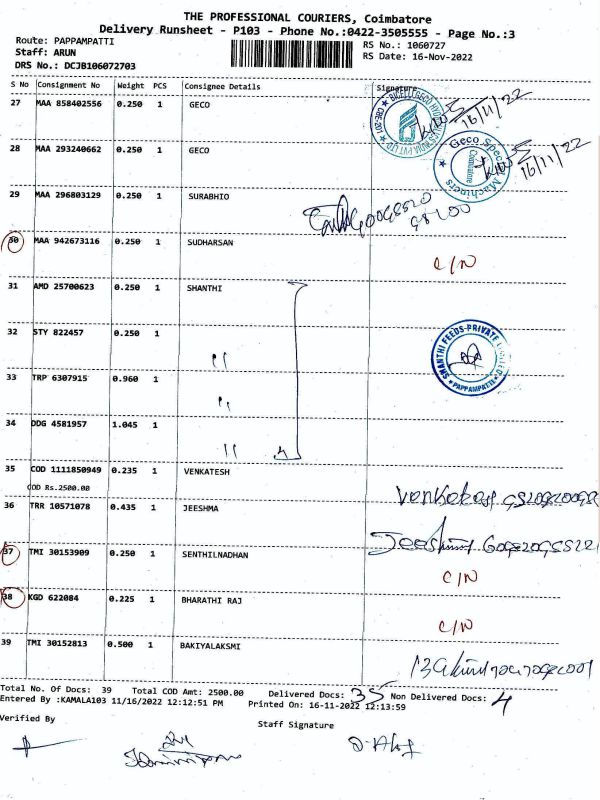 THE PROFESSIONAL COURIERS, Coimbatore
Delivery Runsheet - P103 - Phone No.:0422-3505555 - Page No.:3
Route: PAPPAMPATTI
Staff: ARUN
DRS No.: DCJB106072703
RS No.: 1060727
RS Date: 16-Nov-2022
S No Consignment No Weight PCS Consignee Details Signature
27 MAA 858402556 0.250 1 GECO
16/11/22
28 MAA 293240662 0.250 1 GECO
16/11/22
29 MAA 296803129 0.250 1 SURABHIO
30 MAA 942673116 0.250 1 SUDHARSAN C/N
31 AMD 25700623 0.250 1 SHANTHI
32 STY 822457 0.250 1
SHANTHI FEEDS-PRIVATE LIMITED
PAPPAMPATTI
33 TRP 6307915 0.960 1 "
34 DDG 4581957 1.045 1 "
35 COD 1111850949 0.235 1 VENKATESH
COD Rs.2500.00
36 TRR 10571078 0.435 1 JEESHMA
37 TMI 30153909 0.250 1 SENTHILNADHAN C/N
38 KGD 622084 0.225 1 BHARATHI RAJ C/N
39 TMI 30152813 0.500 1 BAKIYALAKSMI
Total No. Of Docs: 39 Total COD Amt: 2500.00 Delivered Docs: 35 Non Delivered Docs: 4
Entered By :KAMALA103 11/16/2022 12:12:51 PM Printed On: 16-11-2022 12:13:59
Verified By
Staff Signature